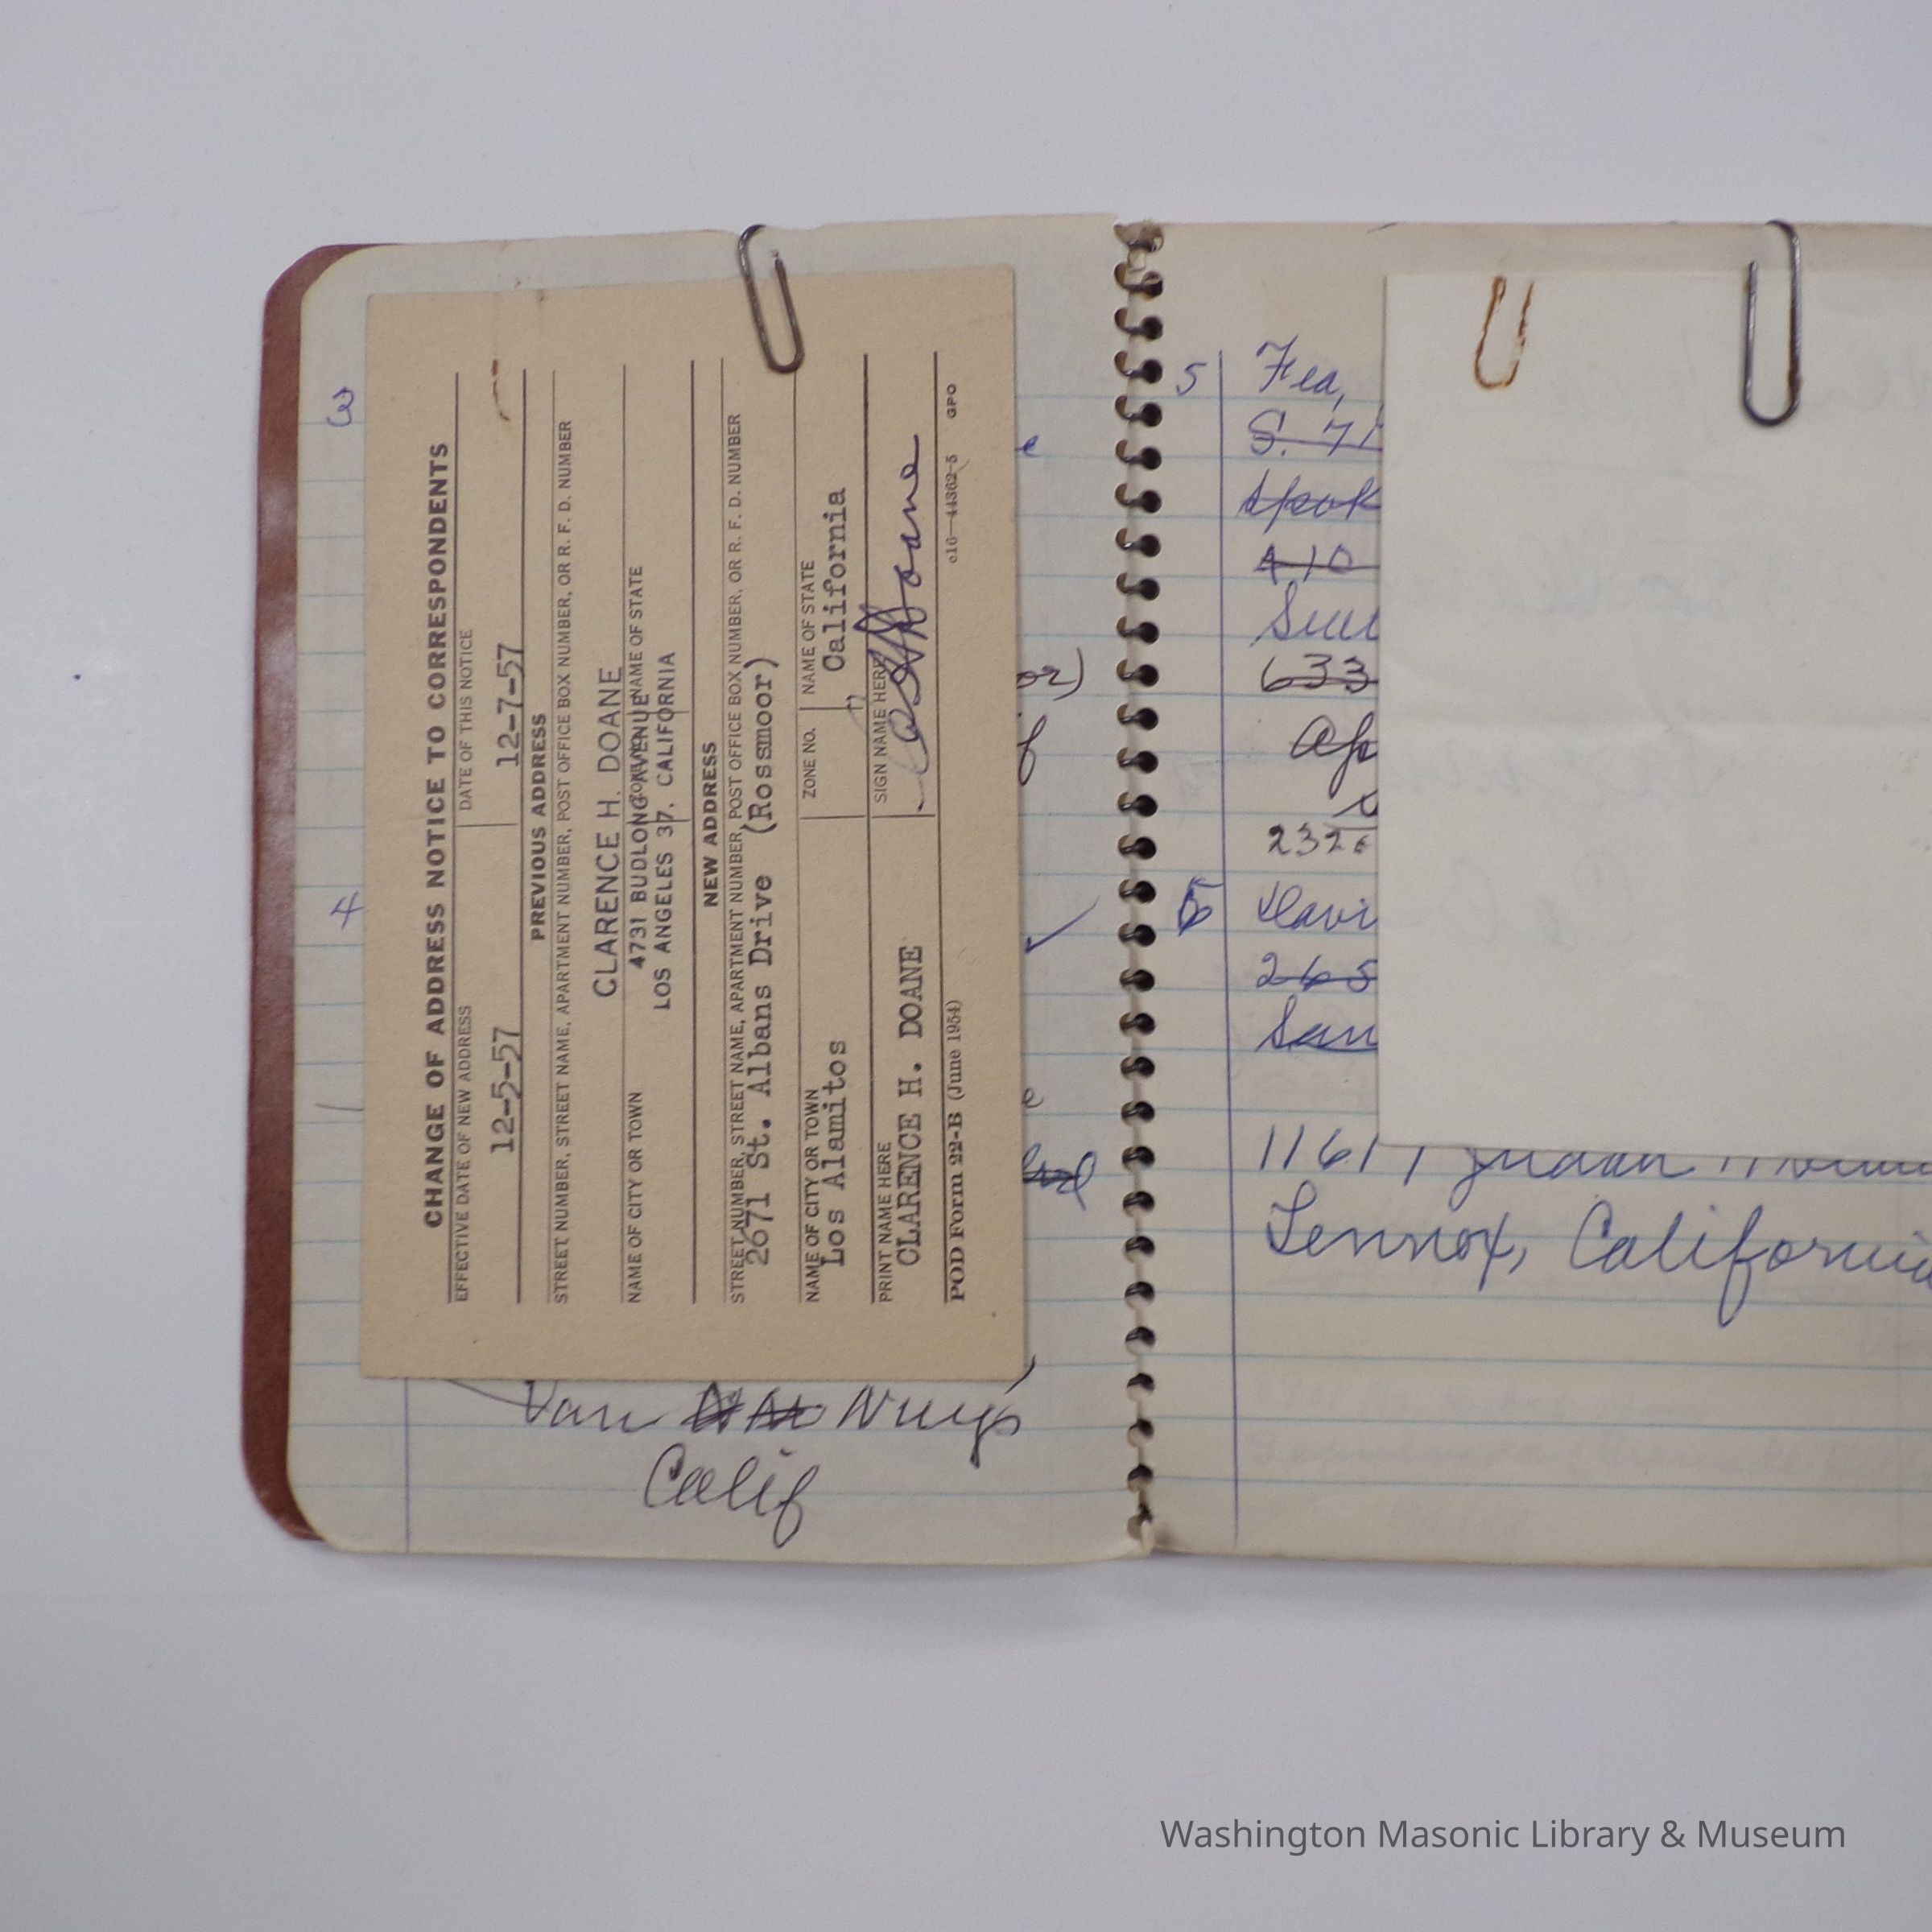 3
4
CHANGE OF ADDRESS NOTICE TO CORRESPONDENTS
EFFECTIVE DATE OF NEW ADDRESS DATE OF THIS NOTICE
12-5-57 12-7-57
PREVIOUS ADDRESS
STREET NUMBER, STREET NAME, APARTMENT NUMBER, POST OFFICE BOX NUMBER, OR R. F. D. NUMBER
CLARENCE H. DOANE
NAME OF CITY OR TOWN NAME OF STATE
4731 BUDLONG AVENUE
LOS ANGELES 37, CALIFORNIA
NEW ADDRESS
STREET NUMBER, STREET NAME, APARTMENT NUMBER, POST OFFICE BOX NUMBER, OR R. F. D. NUMBER
2671 St. Albans Drive (Rossmoor)
NAME OF CITY OR TOWN ZONE NO. NAME OF STATE
Los Alamitos California
PRINT NAME HERE SIGN NAME HERE
CLARENCE H. DOANE CHDoane
POD Form 22-B (June 1954) c16—44362-5 GPO
or)
Van Nuys
Calif
5 Fea,
S. 71
Spok
410
633
Ap
232
6 Davi
265
San
1161
Lennox, California
Washington Masonic Library & Museum